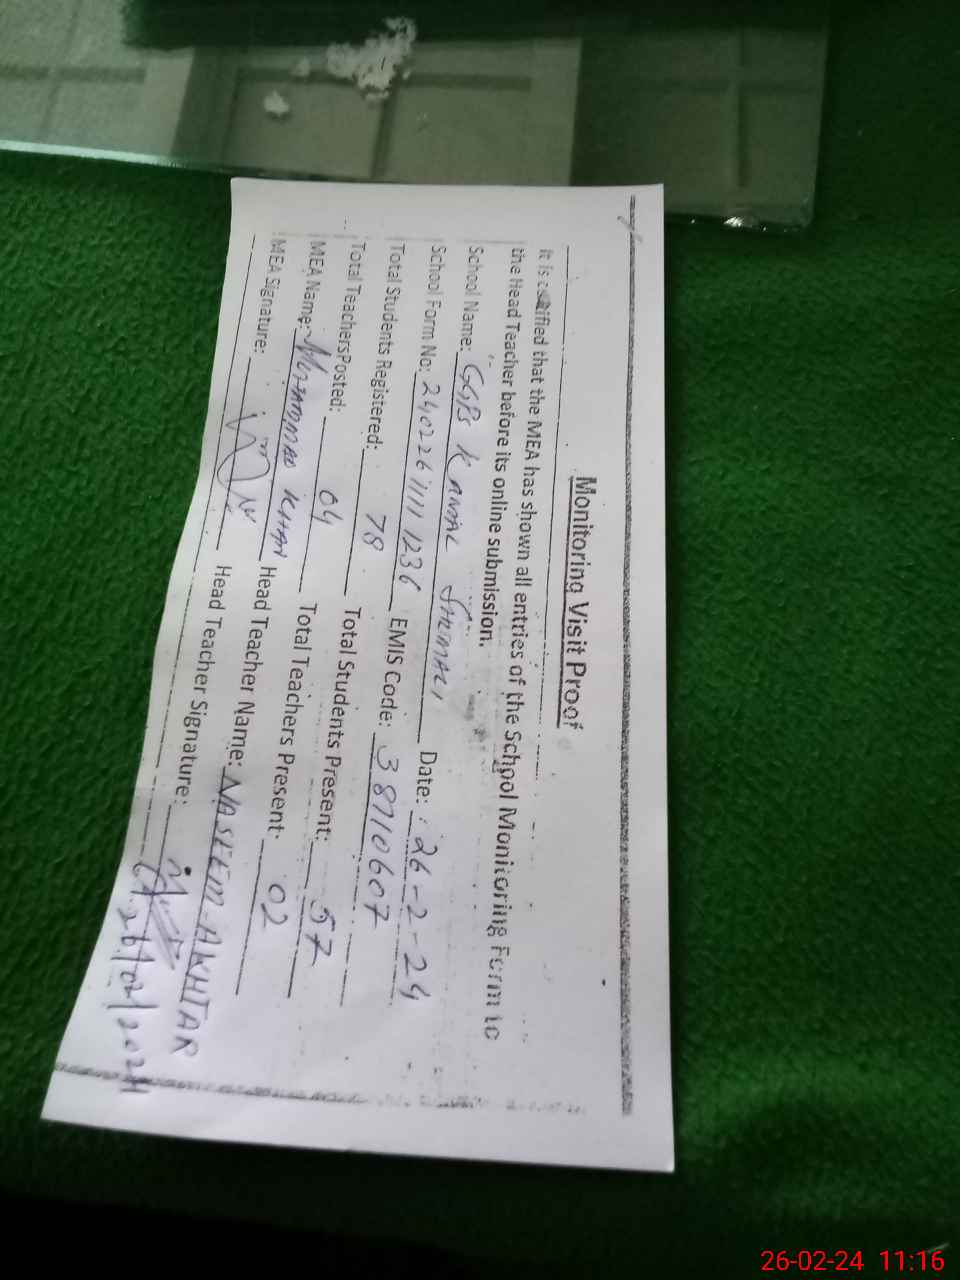 Monitoring Visit Proof
It is certified that the MEA has shown all entries of the School Monitoring Form to
the Head Teacher before its online submission.
School Name: GGPS KAMAL SHUMALI Date: 26-2-24
School Form No: 24022611111236 EMIS Code: 38710607
Total Students Registered: 78 Total Students Present: 57
Total Teachers Posted: 04 Total Teachers Present: 02
MEA Name: MUHAMMAD KHAN Head Teacher Name: NASEEM AKHTAR
MEA Signature: Head Teacher Signature:
26/02/2024
26-02-24 11:16